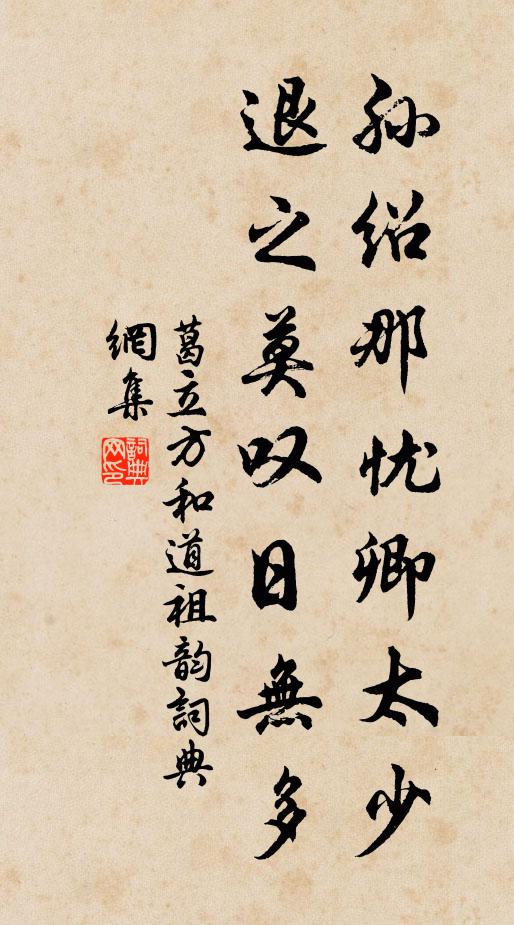 孙绍那忧卿太少
退之莫叹日無多
葛立方和道祖韵詞典
網集
詞典網印